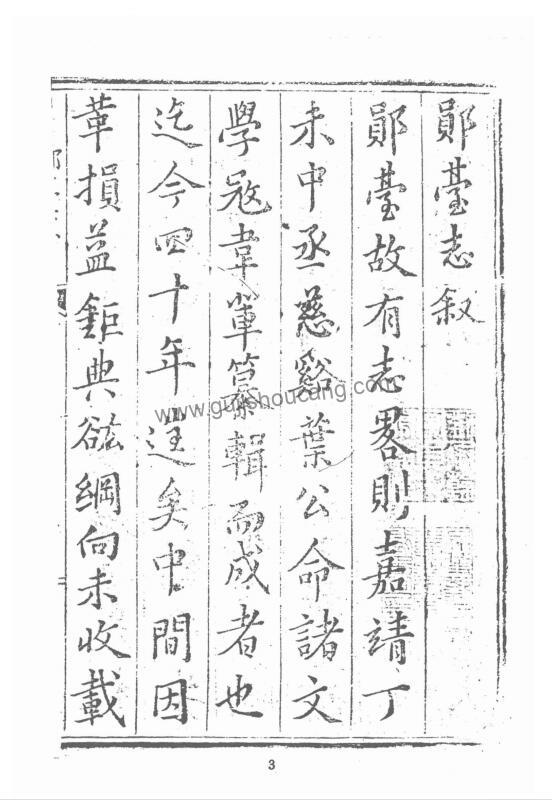 鄖䑓志叙
鄖䑓故有志畧則嘉靖丁
未中丞慈谿葉公命諸文
學冦韋軰篡輯而成者也
迄今四十年
矣中間因
革損益鉅典
綱向未收載
www.guji
shoucang.com
3